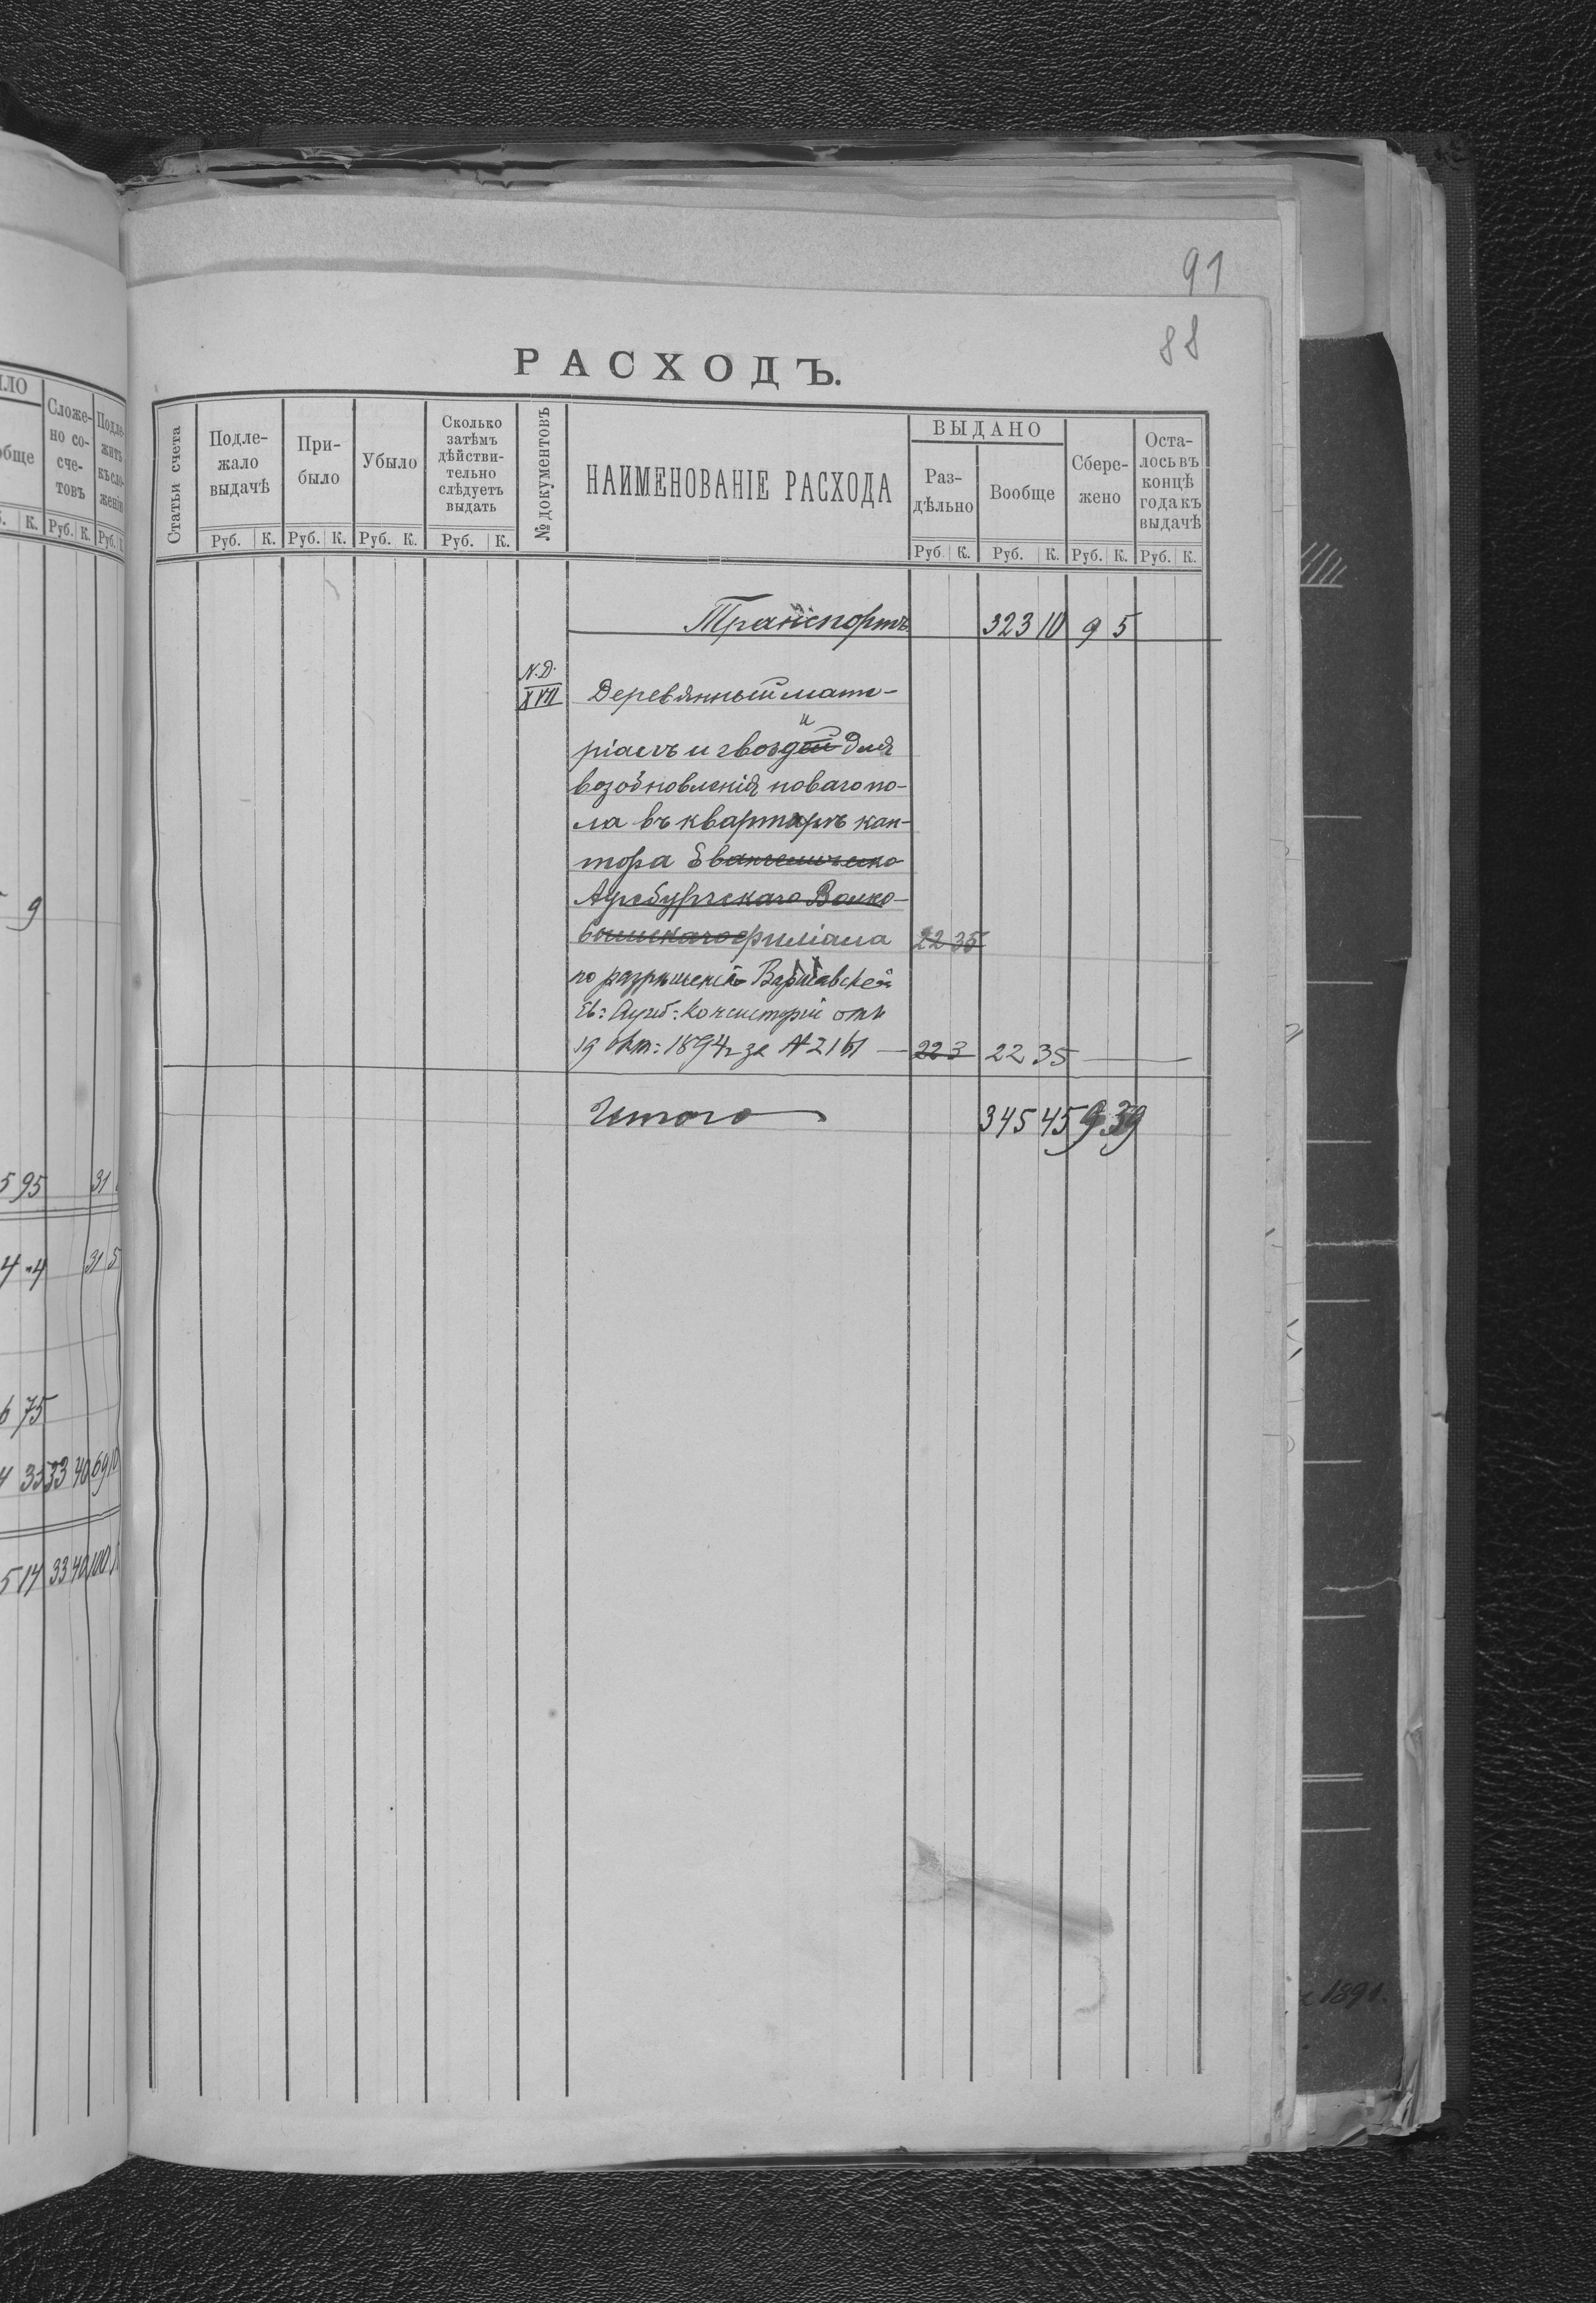 91
88
РАСХОДЪ.
Статьи счета
Подле-
жало
выдачѣ
При-
было
Убыло
Сколько
затѣмъ
дѣйстви-
тельно
слѣдуетъ
выдать
№ документовъ
НАИМЕНОВАНІЕ РАСХОДА
ВЫДАНО
Раз-
дѣльно
Вообще
Сбере-
жено
Оста-
лось въ
концѣ
года къ
выдачѣ
Руб. К. Руб. К. Руб. К. Руб. К. Руб. К. Руб. К. Руб. К. Руб. К.
Транспортъ 323 10 9 5
N.D.
XVII
Деревянный мате-
и
ріалъ и гвоздей для
возобновленія новаго по-
ла въ квартирѣ кан-
тора Евангелическо
Аугсбургскаго Волко-
вышскаго филіала 22 35
по разрѣшенію Варшавской
Ев: Аугсб: Консисторіи отъ
19 Окт: 1894 г за № 2161 — 223 22 35 —
Итого 345 45 9 39
ЛО
обще
Сложе-
но со
сче-
товъ
Подле-
житъ
къ сло-
женію
К. Руб. К. Руб.
9
5 95 31
4 4 31 5
6 75
4 35 33 40 69 10
5 14 33 40 100
1891.